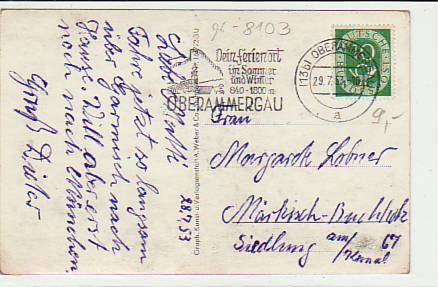 gk-8103
Liebe Mutti,
Fahre jetzt so langsam
über Garmisch nach
Hause. Will aber erst
noch nach München.
Gruß Dieter
28.7.53
Dein Ferienort
im Sommer
und Winter
840-1800m
OBERAMMERGAU
(13b) OBERAMMERGAU
29.7.53
a
DEUTSCHE
9,-
Frau
Margarete Lobner
Märkisch-Buchholz
Siedlung am
Kanal 67
Graph. Kunst- u. Verlagsanstalt A. Weber & Co.